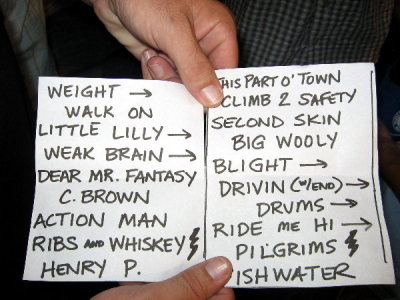 WEIGHT →
WALK ON
LITTLE LILLY →
WEAK BRAIN →
DEAR MR. FANTASY
C. BROWN
ACTION MAN
RIBS AND WHISKEY
HENRY P.
THIS PART O' TOWN
CLIMB 2 SAFETY
SECOND SKIN
BIG WOOLY
BLIGHT →
DRIVIN (w/END) →
DRUMS →
RIDE ME HI →
PILGRIMS
ISHWATER